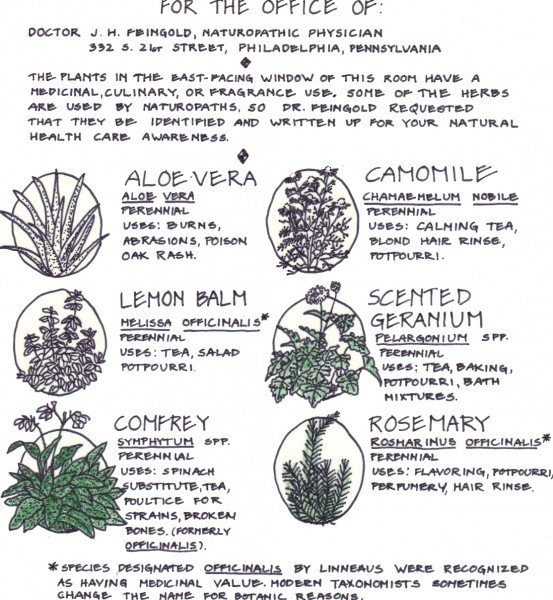 FOR THE OFFICE OF:
DOCTOR J. H. FEINGOLD, NATUROPATHIC PHYSICIAN
332 S. 21ST STREET, PHILADELPHIA, PENNSYLVANIA
THE PLANTS IN THE EAST-FACING WINDOW OF THIS ROOM HAVE A
MEDICINAL, CULINARY, OR FRAGRANCE USE. SOME OF THE HERBS
ARE USED BY NATUROPATHS, SO DR. FEINGOLD REQUESTED
THAT THEY BE IDENTIFIED AND WRITTEN UP FOR YOUR NATURAL
HEALTH CARE AWARENESS.
ALOE VERA
ALOE VERA
PERENNIAL
USES: BURNS,
ABRASIONS, POISON
OAK RASH.
CAMOMILE
CHAMAEMELUM NOBILE
PERENNIAL
USES: CALMING TEA,
BLOND HAIR RINSE,
POTPOURRI.
LEMON BALM
MELISSA OFFICINALIS*
PERENNIAL
USES: TEA, SALAD
POTPOURRI.
SCENTED
GERANIUM
PELARGONIUM SPP.
PERENNIAL
USES: TEA, BAKING,
POTPOURRI, BATH
MIXTURES.
COMFREY
SYMPHYTUM SPP.
PERENNIAL
USES: SPINACH
SUBSTITUTE, TEA,
POULTICE FOR
SPRAINS, BROKEN
BONES. (FORMERLY
OFFICINALIS).
ROSEMARY
ROSMARINUS OFFICINALIS*
PERENNIAL
USES: FLAVORING, POTPOURRI,
PERFUMERY, HAIR RINSE.
*SPECIES DESIGNATED OFFICINALIS BY LINNEAUS WERE RECOGNIZED
AS HAVING MEDICINAL VALUE. MODERN TAXONOMISTS SOMETIMES
CHANGE THE NAME FOR BOTANIC REASONS.